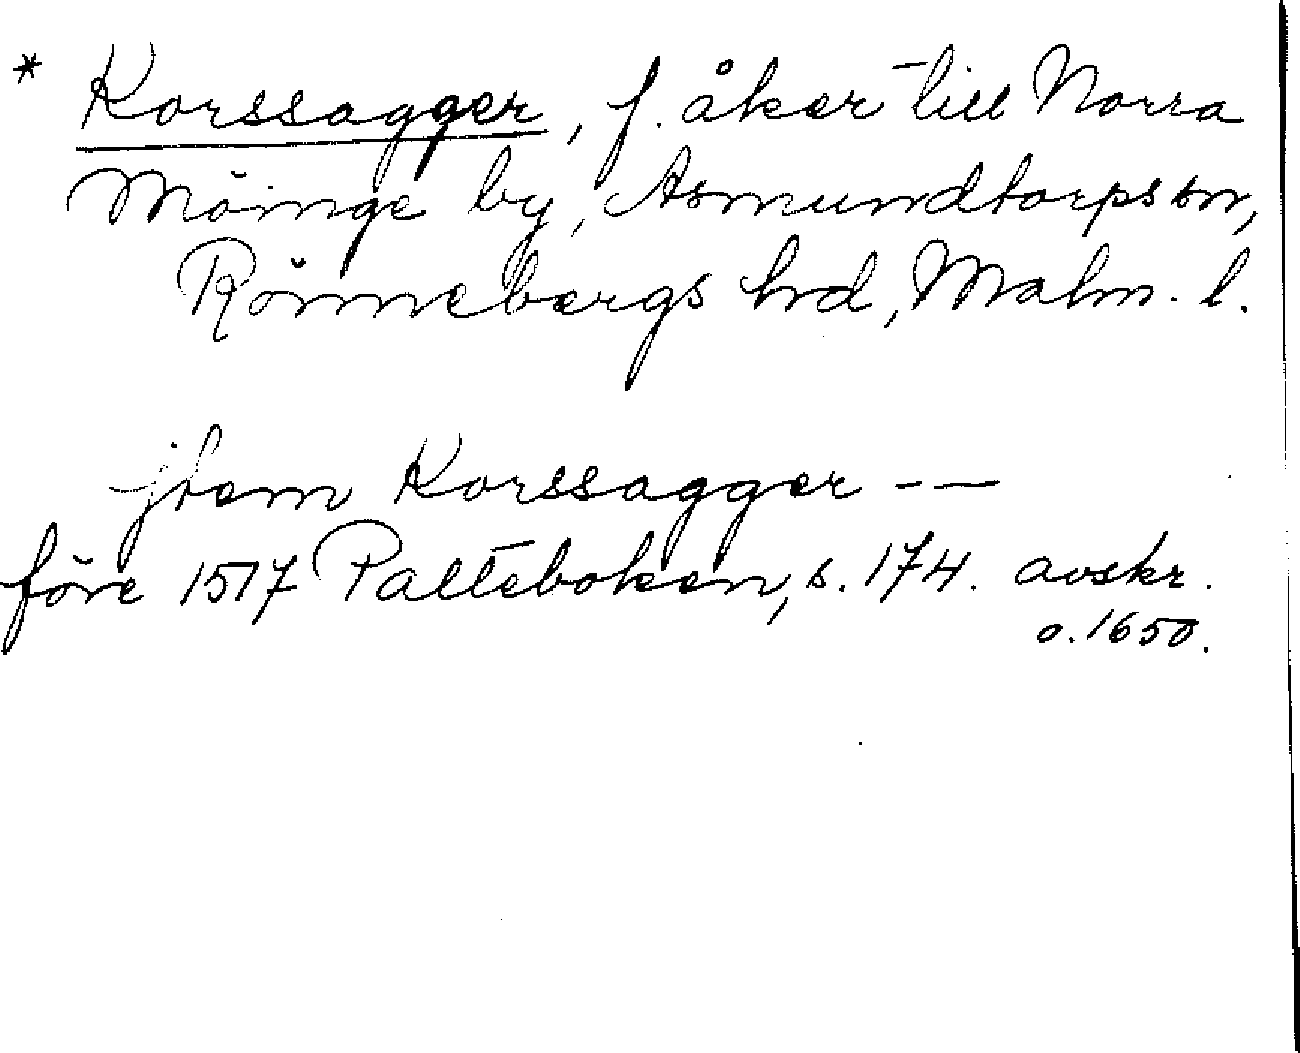 * Korssagger, f. åker till Norra
Möinge by, Asmundtorps sn,
Rönnebergs hd, Malm. l.
jtem Korssagger - —
före 1517 Palteboken, s. 174. avskr.
o. 1650.